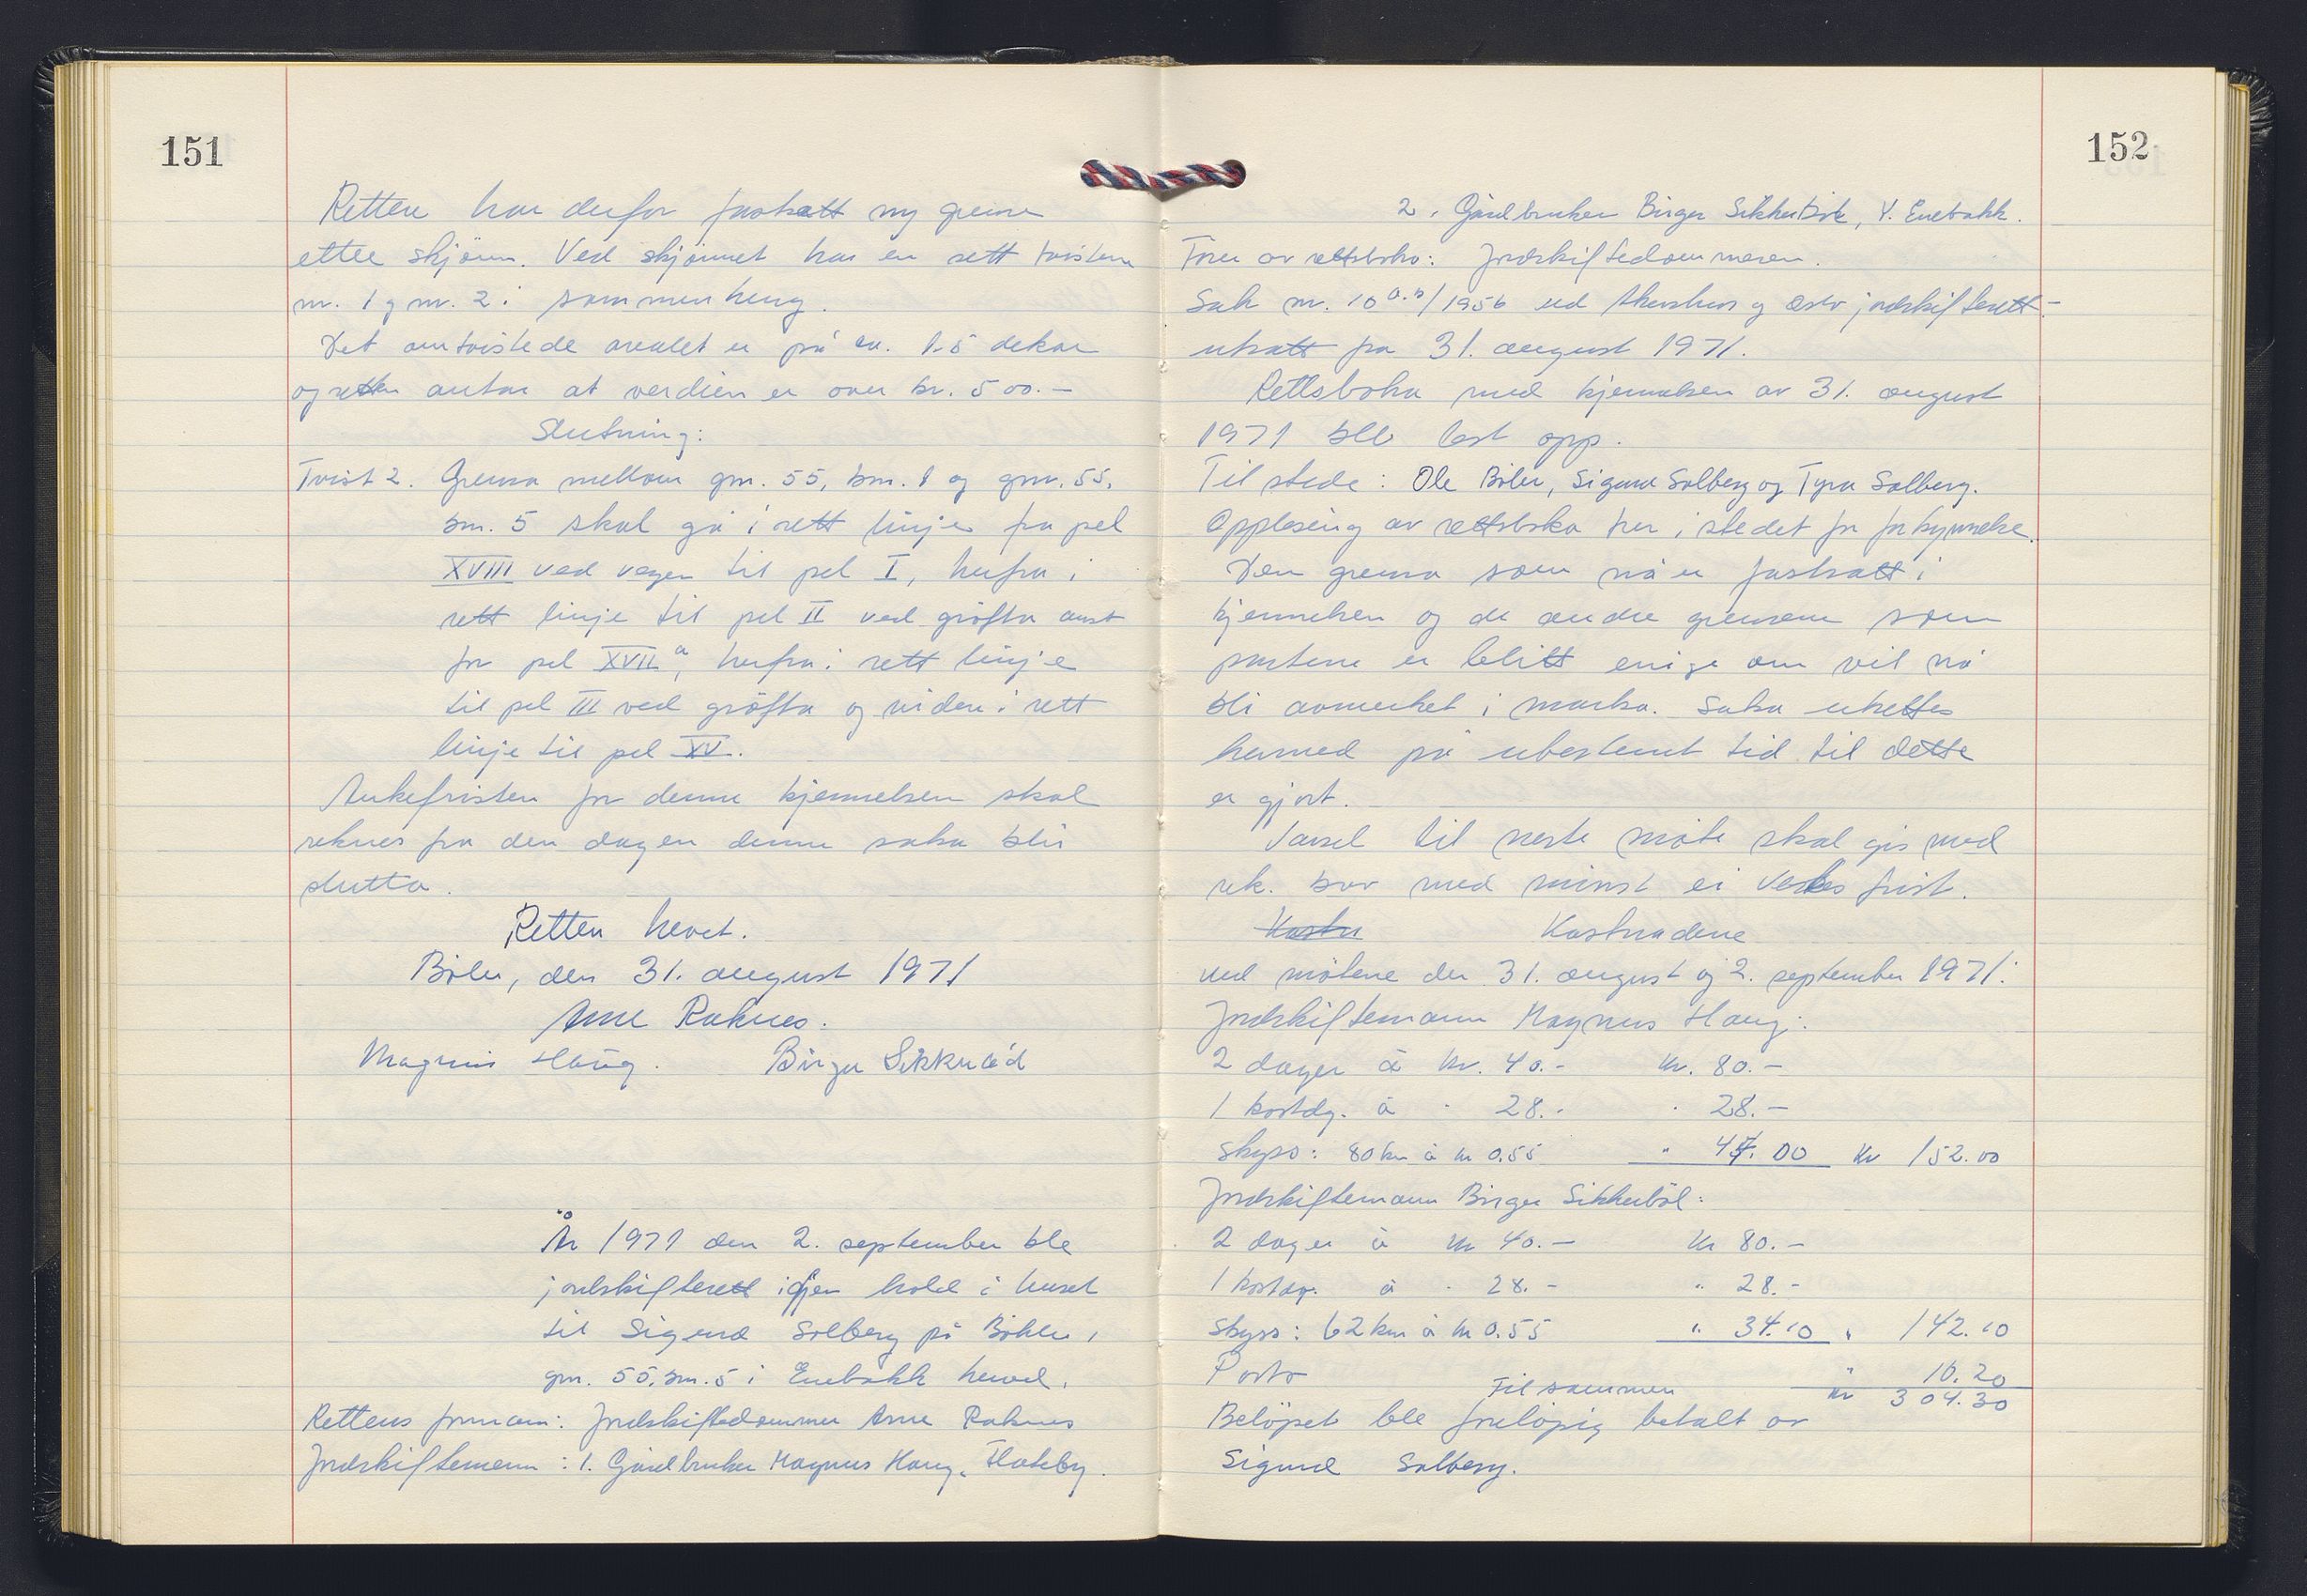 151
Retten har derfor fastsatt ny grense
etter skjönn. Ved skjönnet har en sett tvistene
nr. 1 og nr. 2 i sammenheng.
Det omtvistede arealet er på ca. 1.5 dekar
og retten antar at verdien er over kr. 500.-
Slutning:
Tvist 2. Grensa mellom gnr. 55, bnr. 1 og gnr. 55,
bnr. 5 skal gå i rett linje fra pel
XVIII ved vegen til pel I, herfra i
rett linje til pel II ved gröfta aust
for pel XVII a, herfra i rett linje
til pel III ved gröfta og videre i rett
linje til pel XV.
Ankefristen for denne kjennelsen skal
reknes fra den dagen denne saka blir
slutta.
Retten hevet.
Böler, den 31. august 1971
Arne Raknes.
Magnus Haug. Birger Sikkebøl
År 1971 den 2. september ble
jordskifterett igjen hold i huset
til Sigurd Solberg på Böhler,
gnr. 55, bnr. 5 i Enebakk herred.
Rettens formann: Jordskiftedommer Arne Raknes
Jordskiftemenn: 1. Gårdbruker Magnus Haug, Flateby.
152
2. Gårdbruker Birger Sikkebøl, Y. Enebakk.
Förer av rettsboka: Jordskiftedommeren.
Sak nr. 10 a.b/1956 ved Akershus og Oslo jordskifterett-
utsatt fra 31. august 1971.
Rettsboka med kjennelsen av 31. august
1971 ble lest opp.
Til stede: Ole Böler, Sigurd Solberg og Tyra Solberg.
Opplesing av rettsboka trer i stedet for forkynnelse.
Den grensa som nå er fastsatt i
kjennelsen og de andre grensene som
partene er blitt enige om vil nå
bli avmerket i marka. Saka utsettes
hermed på ubestemt tid til dette
er gjort.
Varsel til neste møte skal gis med
rek. brev med minst ei vekes frist.
Kostn Kostnadene
ved mötene den 31. august og 2. september 1971:
Jordskiftemann Magnus Haug:
2 dager à kr. 40.- kr. 80.-
1 kostdg. à " 28.- " 28.-
Skyss: 80 km à kr 0.55 " 44.00 kr 152.00
Jordskiftemann Birger Sikkeböl:
2 dager à kr 40.- kr 80.-
1 kostdg. à " 28.- " 28.-
Skyss: 62 km à kr 0.55 " 34.10 " 142.10
Porto " 10.20
Til sammen kr 304.30
Belöpet ble foreløpig betalt av
Sigurd Solberg.